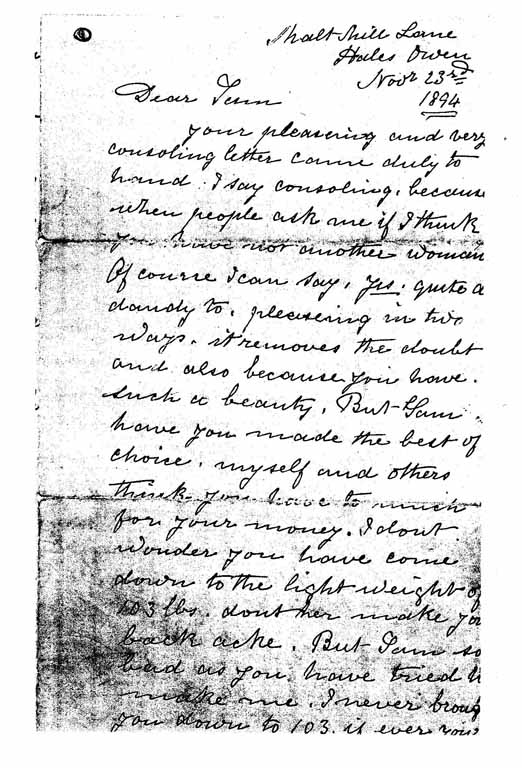 Malt Mill Lane
Hales Owen
Novr 23rd
1894
Dear Sam
your pleasering and very
consoling letter came duly to
hand. I say consoling, because
when people ask me if I think
you have not another woman
Of course I can say, yes, quite a
dandy to, pleasering in two
ways, it removes the doubt
and also because you have
such a beauty, But Sam
have you made the best of
choice, myself and others
think you have to much
for your money. I dont
wonder you have come
down to the light weight of
103 lbs. dont her make you
back ache. But Sam so
bad as you have tried
make me, I never
you down to 103. if ever